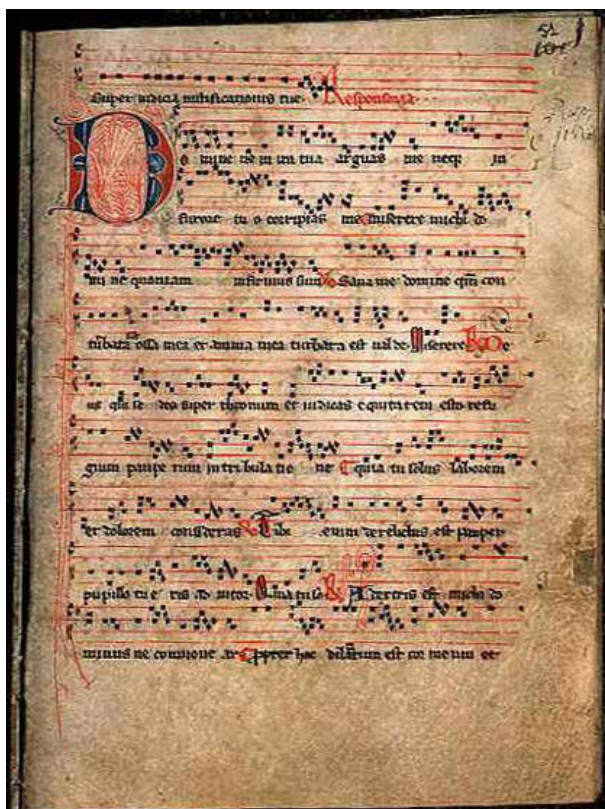 51
super iudicia iustificationis tue. Responsoria.
Domine ne in ira tua arguas me neqz in
furore tuo corripias me miserere michi do
mi ne quoniam infirmus sum Sana me domine qm con
turbata ossa mea et anima mea turbata est valde. Miserere De
us qui se des super thronum et iudicas equitatem esto refu
gium paupe rum in tribulatio ne quia tu solus laborem
et dolorem consideras Tibi enim derelictus est pauper
pupillo tu e ris ad iutor. Quia tu so A dextris est michi do
minus ne commove ar Propter hoc dilatatum est cor meum et